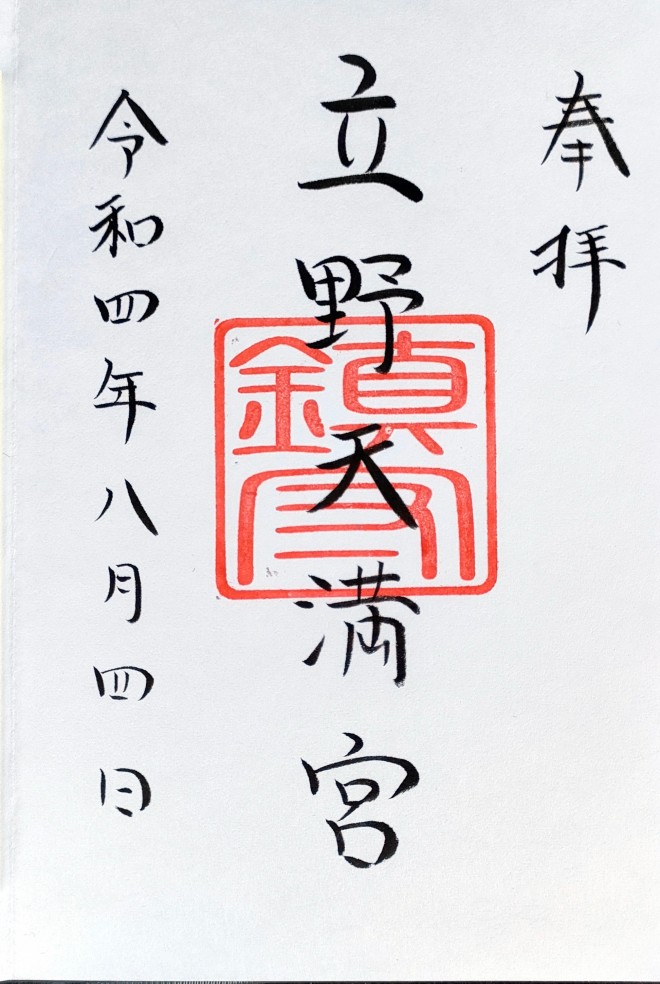 奉拝
立野天満宮
令和四年八月四日